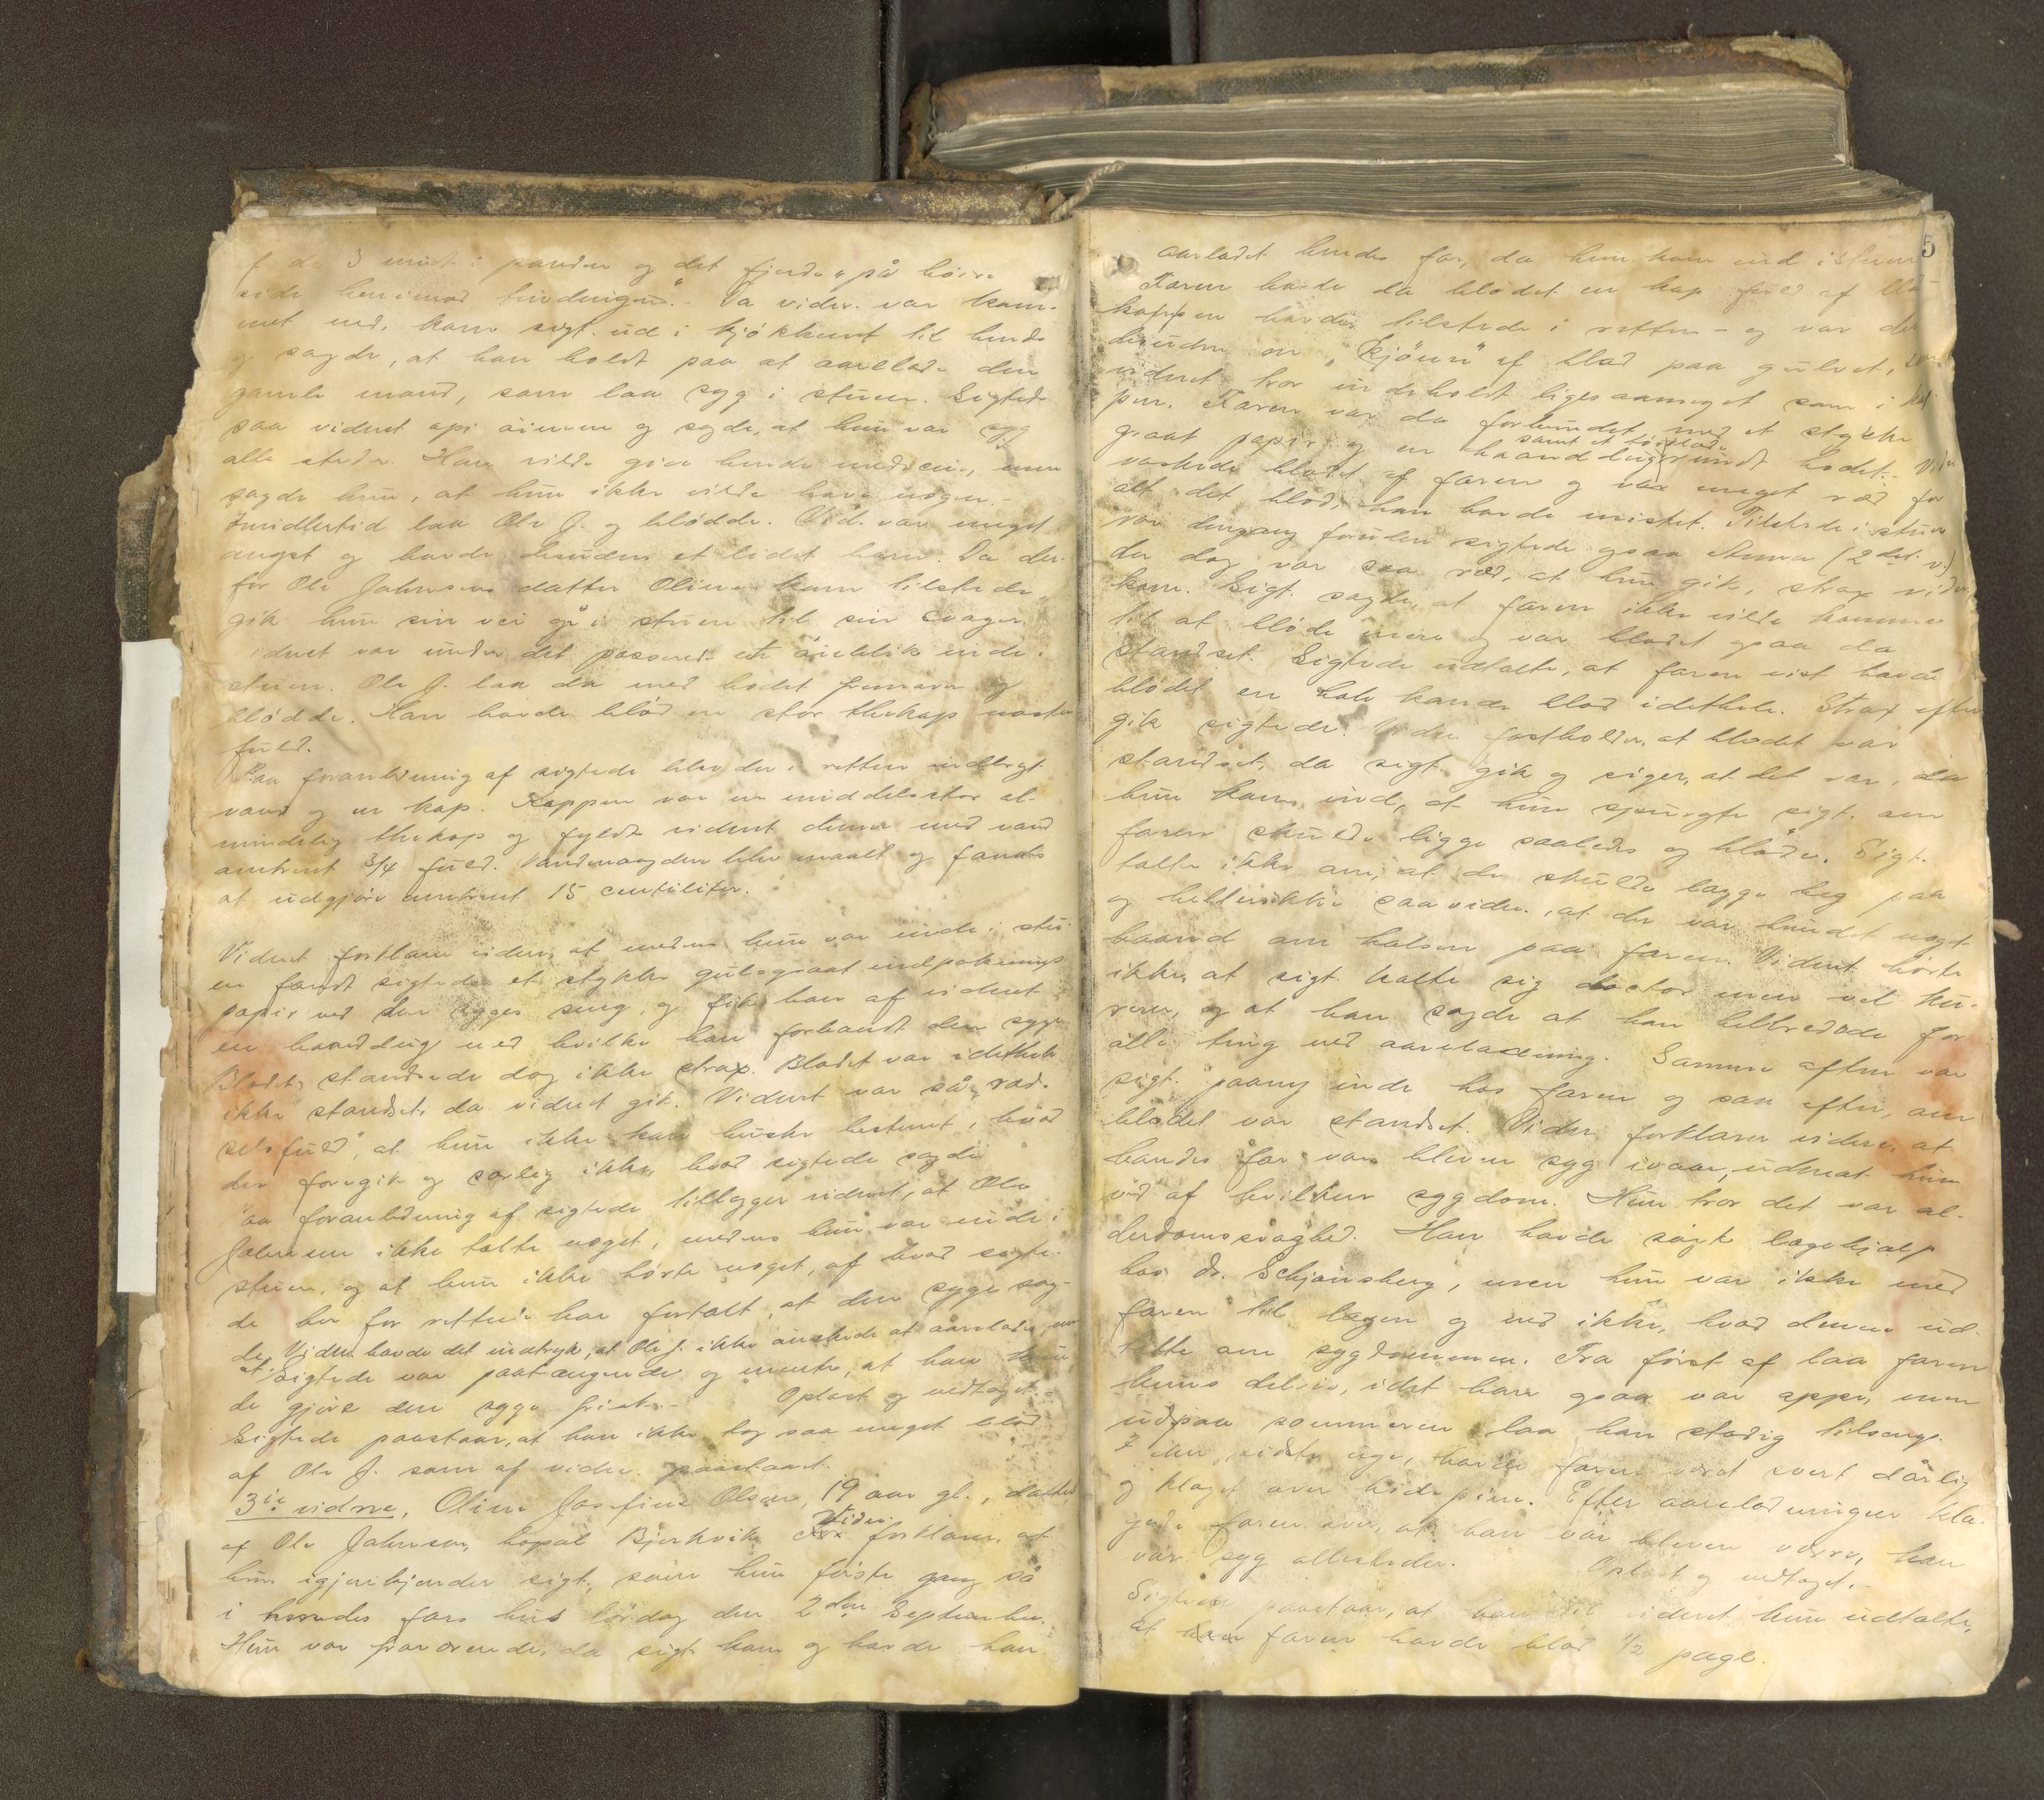 da 3 midt i panden og det fjerde på höire
side henimod tindingen." - Da vidn. var kom-
met ned, kom sigt. ud i kjökkenet til hende
og sagde, at han holdt paa at aarelade den
gamle mand, som laa syg i stuen. Sigtede
saa vidnet i öinene og sagde, at hun var syg
alle steder. Han vilde give hende medicin, men
sagde hun, at hun ikke vilde have nogen. -
Imidlertid laa Ole J. og blödde. Vid. var meget
angst og havde desuden et lidet barn. Da der-
for Ole Johnsens datter Oline kom tilstede,
gik hun sin vei i stuen til sin svager.
Vidnet var under det passerede et öieblik inde i
stuen. Ole J. laa da med hodet fremover og
blödde. Han havde blöd en stor thekop næsten
fuld.
Paa foranledning af sigtede blev der i retten indbragt
vand og en kop. Koppen var en middelsstor al-
mindelig thekop og fyldte vidnet denne med vand
omtrent 3/4 fuld. Vandmængden blev maalt og fandtes
at udgjöre omtrent 15 centiliter.
Vidnet forklarer videre, at medens hun var inde i stu-
en fandt sigtede et stykke gulgraat indpaknings-
papir ved den syges seng, og fik han af vidnet
en haanddug med hvilke han forbandt den syge.
Blodet standsede dog ikke strax. Blodet var idethele
ikke standset, da vidnet gik. Vidnet var så "ræd-
selsfuld", at hun ikke kan huske bestemt, hvad
der foregik og særlig ikke, hvad sigtede sagde
Paa foranledning af sigtede tillægger vidnet, at Ole
Johnsen ikke talte noget, medens hun var inde i
stuen, og at hun ikke hörte noget, af hvad sigte-
de her for retten har fortalt, at den syge sag-
de. Vidn. havde det indtryk, at Ole J. ikke önskede at aarelades, men
at Sigtede var paatrængende og mente, at han kun-
de gjöre den syge frisk. - Oplæst og vedtaget. -
Sigtede paastaar, at han ikke tog saa meget blod
af Ole J. som af vidn. paastaaet.
3die vidne, Oline Josefine Olsen, 19 aar gl., datter
af Ole Johnsen, bopæl Bjerkvik Vidn. forklarer, at
hun igjenkjender sigt., som hun förste gang så
i hendes fars hus lördag den 2den September.
Hun var fraværende, da sigt. kom og havde han
5
aareladet hendes far, da hun kom ind i stuen
Faren havde da blödet en kop fuld af blod
koppen havdes tilstede i retten - og var der
desuden en "skjönn" af blod paa gulvet, som
vidnet tror indeholdt ligesaameget som i kop-
pen. Faren var da forbundet med et stykke
graat papir og en haanddug samt et törklæde rundt hodet. - Vidn.
vaskede blodet af faren og var meget ræd for
alt det blod, han havde mistet. Tilstede i stuen
var dengang foruden sigtede ogsaa Anna (2det v.)
der dog var saa ræd, at hun gik, strax vidn.
kom. Sigt. sagde, at faren ikke vilde komme
til at blöde mere og var blodet ogsaa da
standset. Sigtede udtalte, at faren vist havde
blödet en halv kande blod idethele. Strax efter
gik sigtede. Vidn. fastholder, at blodet var
standset, da sigt. gik og siger, at det var, da
hun kom ind, at hun spurgte sigt. om
faren skulde ligge saaledes og blöde. Sigt.
talte ikke om, at de skulde lægge dug paa
og hellerikke saa vidn., at der var bundet noget
baand om halsen paa faren. Vidnet hörte
ikke, at sigt. kalte sig doctor men vel ku-
rerer, og at han sagde at han helbredede for
alle ting ved aareladning. Samme aften var
sigt. paany inde hos faren og saa efter, om
blodet var standset. Vidn. forklarer videre, at
hendes far var bleven syg ivaar, udenat hun
ved af hvilken sygdom. Hun tror det var al-
derdomssvaghed. Han havde sögt lægehjælp
hos Dr. Schjönsberg, men hun var ikke med
faren til lægen og ved ikke, hvad denne ud-
talte om sygdommen. Fra först af laa faren
kuns delvis, idet han ogsaa var oppe, men
udpaa sommeren laa han stadig tilsengs.
I den sidste uge, havde faren været svært dårlig
og klaget over hodepine. Efter aareladningen kla-
gede faren over, at han var bleven værre, han
var syg allesteder. Oplæst og vedtaget. -
Sigtede paastaar, at han til vidnet kun udtalte,
at faren havde blød 1/2 pægl.